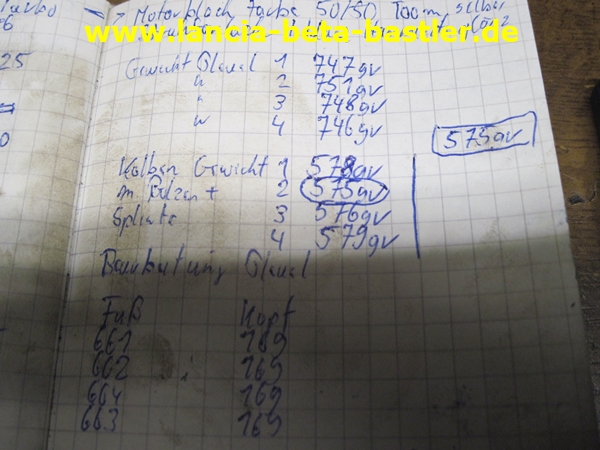 www.lancia-beta-bastler.de
-> Motorblock Farbe 50/50 Toom, selber
25
Gewicht Pleuel 1 747gr
" 2 751gr
" 3 748gr
" 4 746gr
575gr
Kolben Gewicht 1 578gr
m. Bolzen + 2 575gr
Splinte 3 576gr
4 579gr
Bearbeitung Pleuel
Fuß Kopf
661 169
662 169
664 169
663 169